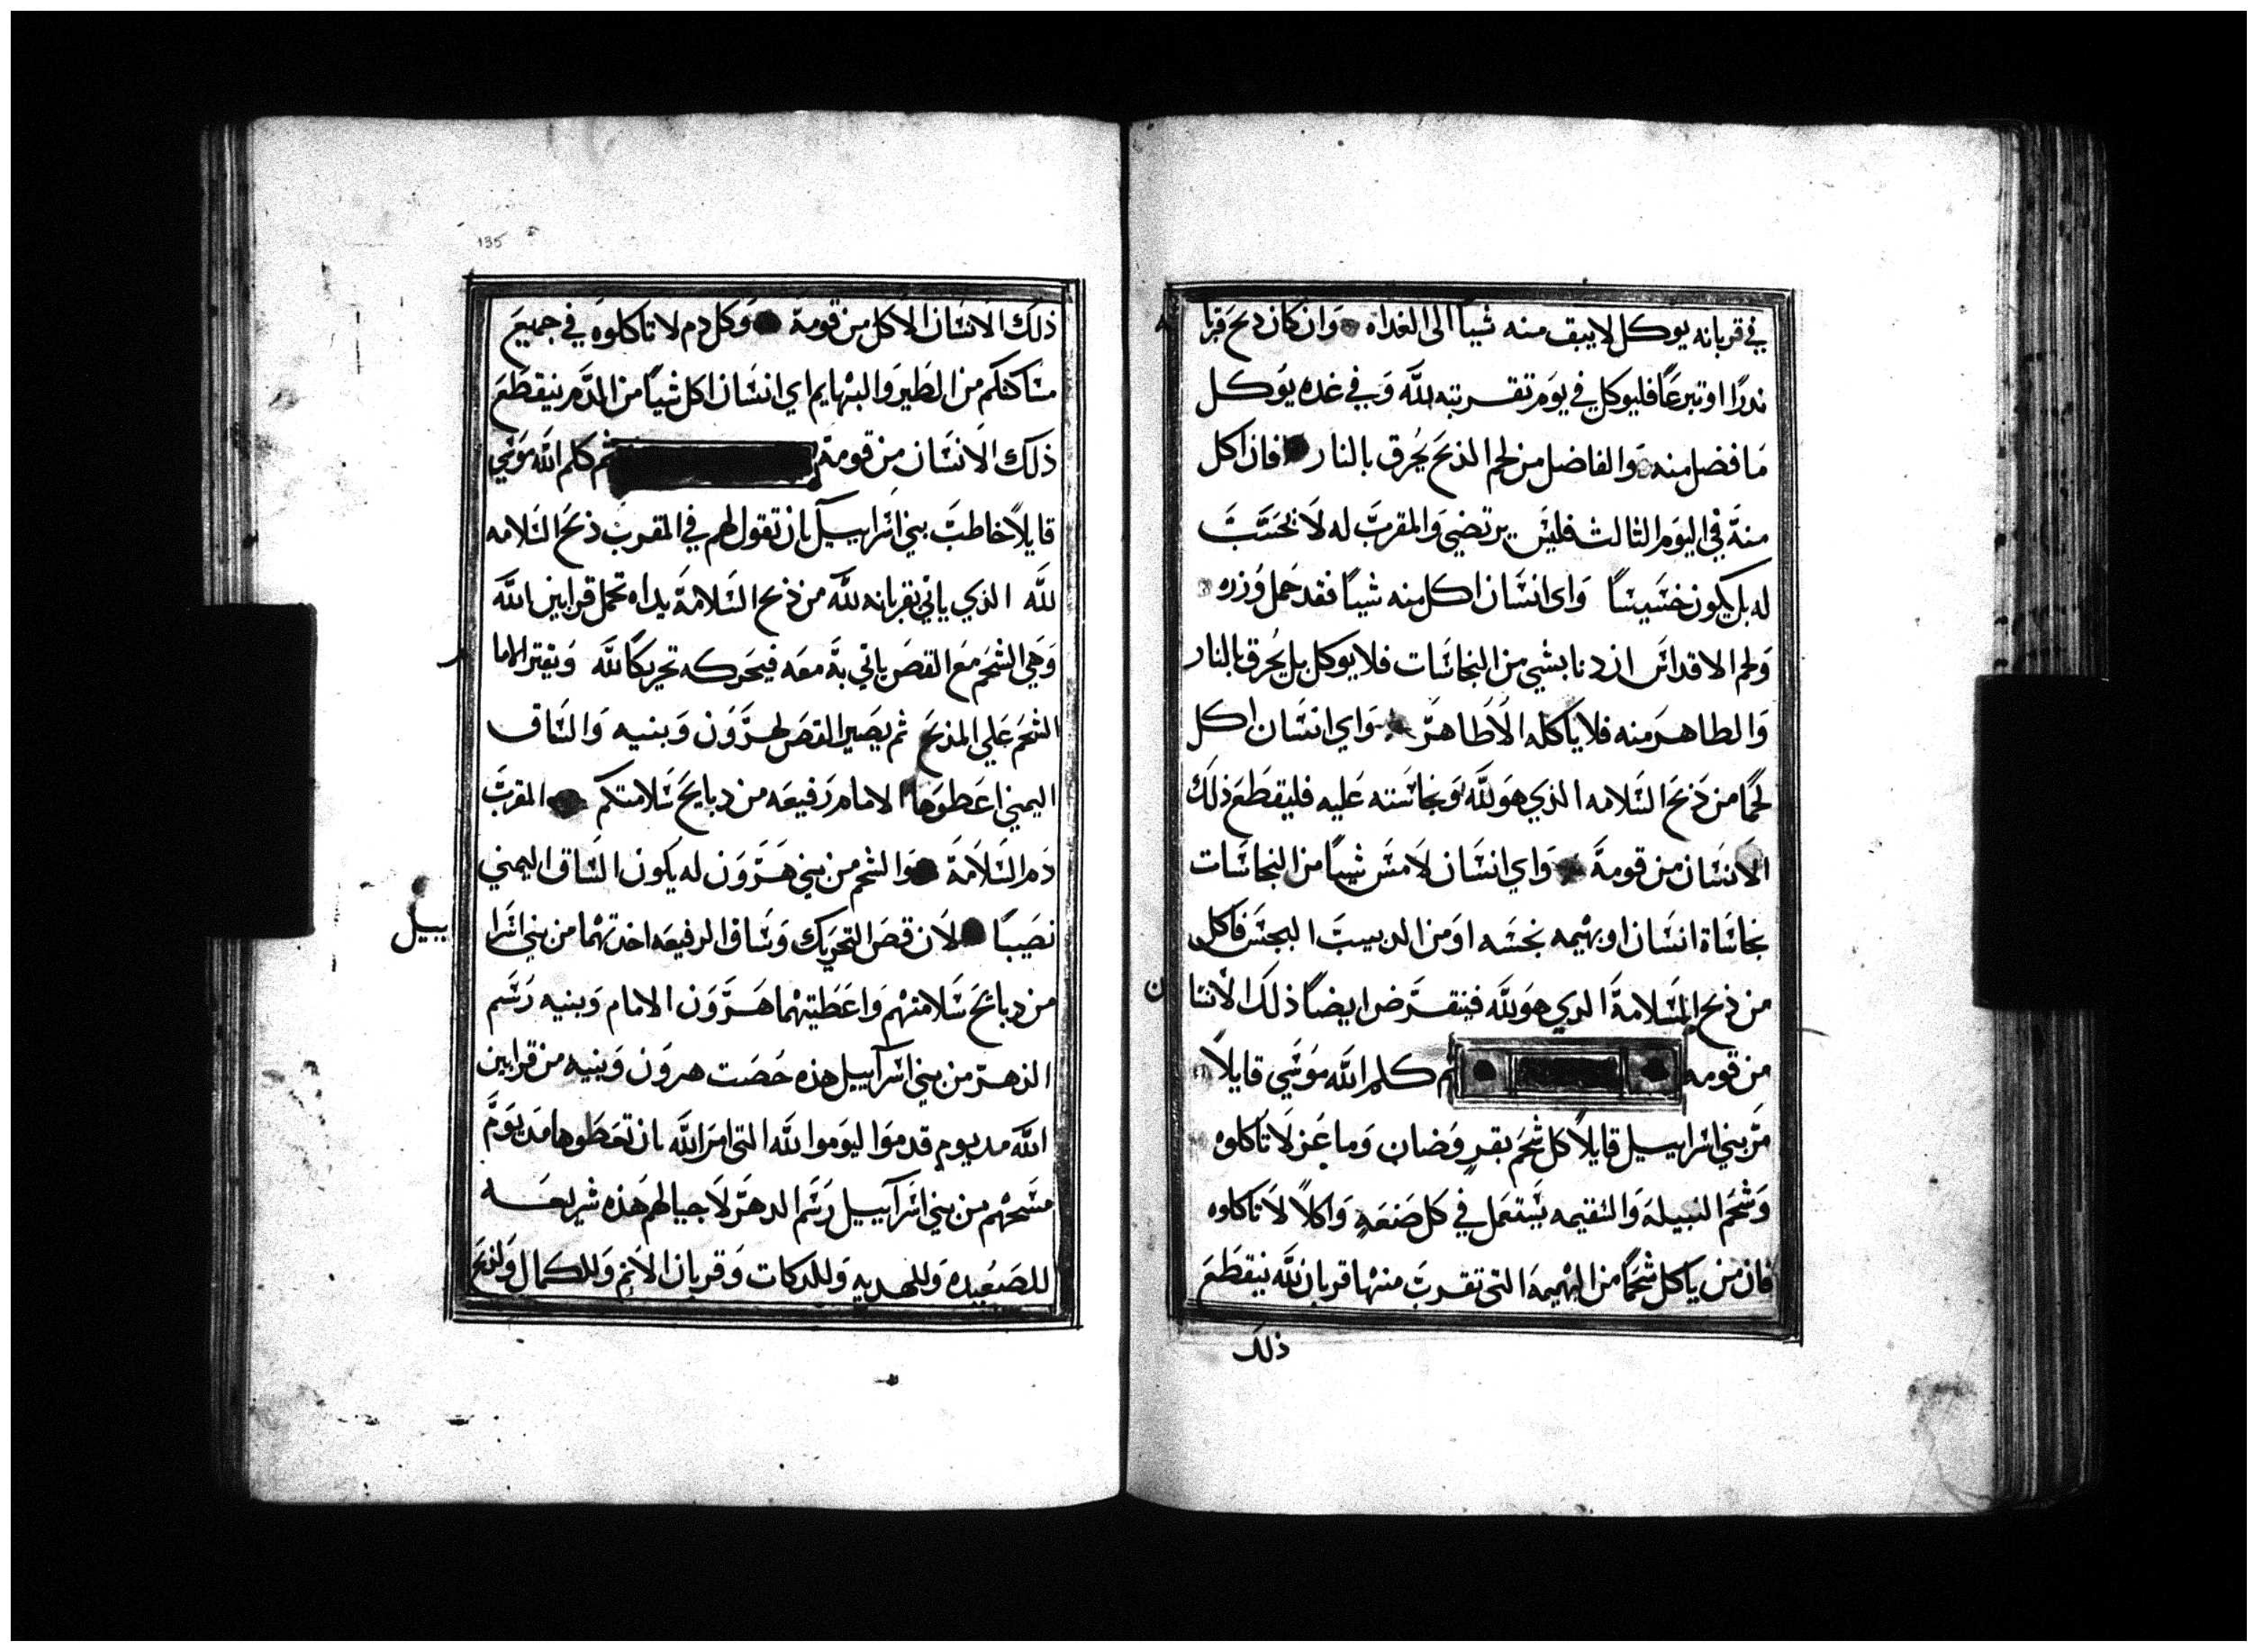 في قربانه يوكل لا يبق منه شيا الى الغداه وان كان ذبح قربا
ن
ندرًا او تبرعًا فليوكل في يوم تقربته لله وفي غده يوكل
ما فضل منه والفاضل من لحم الذبح يُحرق بالنار فان اكل
منه في اليوم الثالث فليس يرتضي والمقرب له لا يحسب
له بل يكون خسيسًا واي انسان اكل منه شيا فقد حمل وزره
ولحم الاقداس ان دنا بشي من النجاسات فلا يوكل بل يُحرق بالنار
والطاهر منه فلا ياكله الا طاهر واي انسان اكل
لحمًا من ذبح السلامه الذي هو لله ونجاسته عليه فليقطع ذلك
الانسان من قومة واي انسان لامس شيًا من النجاسات
نجاساة انسان او بهيمه نجسه او من الدبيب النجس فاكل
من ذبح السلامة الدي هو لله فينقرض ايضًا ذلك الانسا
ن
من قومه ثم كلم الله موسي قايلا
مر بني اسراييل قايلاً كل شحم بقرٍ وضان وماعز لا تاكلوه
وشحم النبيلة والسقيمه يستعمل في كل صنعةٍ واكلاً لا تاكلوه
فان من ياكل شحمًا من البهيمة التي تقرب منها قربان لله ينقطع
ذلك
135
ذلك الانسان الاكل من قومة وكل دم لا تاكلوه في جميع
مساكنكم من الطير والبهايم اي انسان اكل شيًا من الدم ينقطع
ذلك الانسان من قومة ثم كلم الله موسي
قايلاً خاطب بني اسراييل بان تقول لهم في المقرب ذبح السلامه
لله الذي ياتي بقربانه لله من ذبح السلامة يداه تحمل قرابين الله
وهي الشحم مع القص ياتي به معه فيحركه تحريكًا لله ويقتر الاما
م
الشحم علي المذبح ثم يصير القص لهرون وبنيه والساق
اليمني اعطوها الامام رفيعه من دبايح سلامتكم المقرب
دم السلامة والشحم من بني هرون له يكون الساق اليمني
نصيبًا لان قص التحريك وساق الرفيعه اخدتهما من بني اسرا
ييل
من دبائح سلامتهم واعطيتهما هرون الامام وبنيه رسم
الدهر من بني اسراييل هذه حصت هرون وبنيه من قرابين
الله مد يوم قدموا ليوموا لله التي امر الله بان تعطوها مد يوم
مسحهم من بني اسراييل رسم الدهر لاجيالهم هذه شريعه
للصعيده وللهديه وللدكات وقربان الاثم وللكمال ولذبح